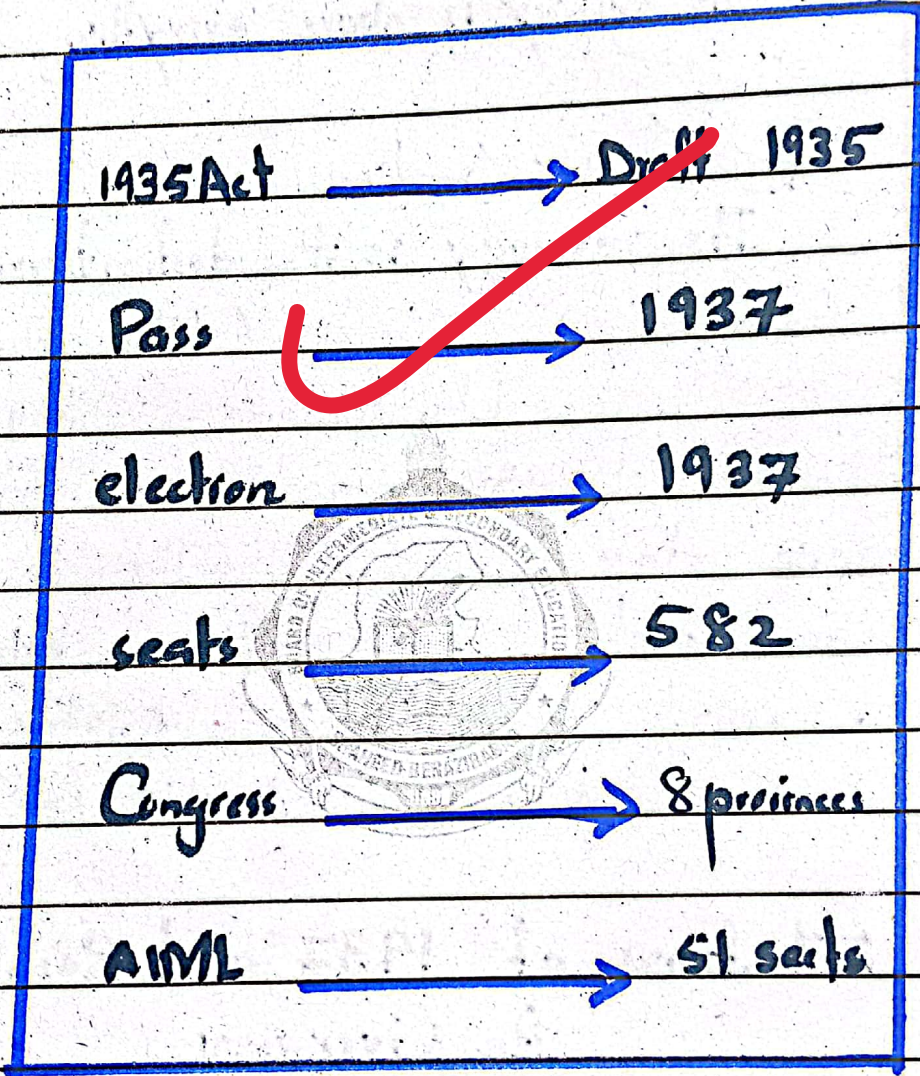 1935 Act → Draft 1935
Pass → 1937
election → 1937
seats → 582
Congress → 8 proirnces
AIML → 51 seats